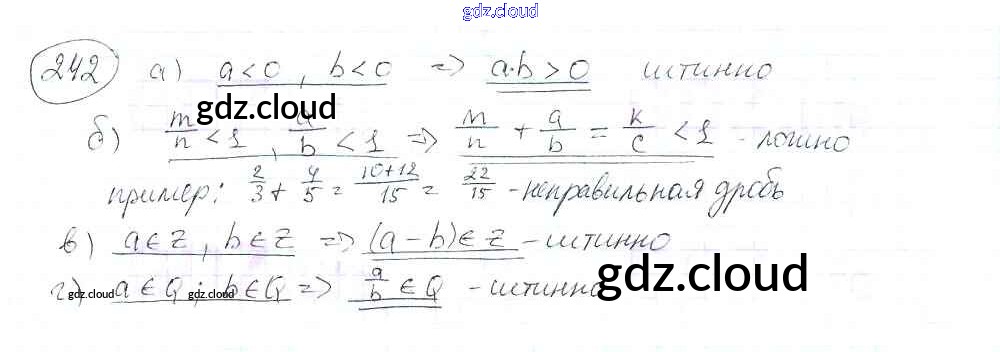 gdz.cloud
242 а) a<0, b<0 => a·b>0 истинно
gdz.cloud
б) m/n < 1, a/b < 1 => m/n + a/b = k/c < 1 - ложно
пример: 2/3 + 4/5 = 10+12/15 = 22/15 - неправильная дробь
в) a∈Z, b∈Z => (a-b)∈Z - истинно
г) a∈Q; b∈Q => a/b ∈ Q - истинно
gdz.cloud gdz.cloud gdz.cloud